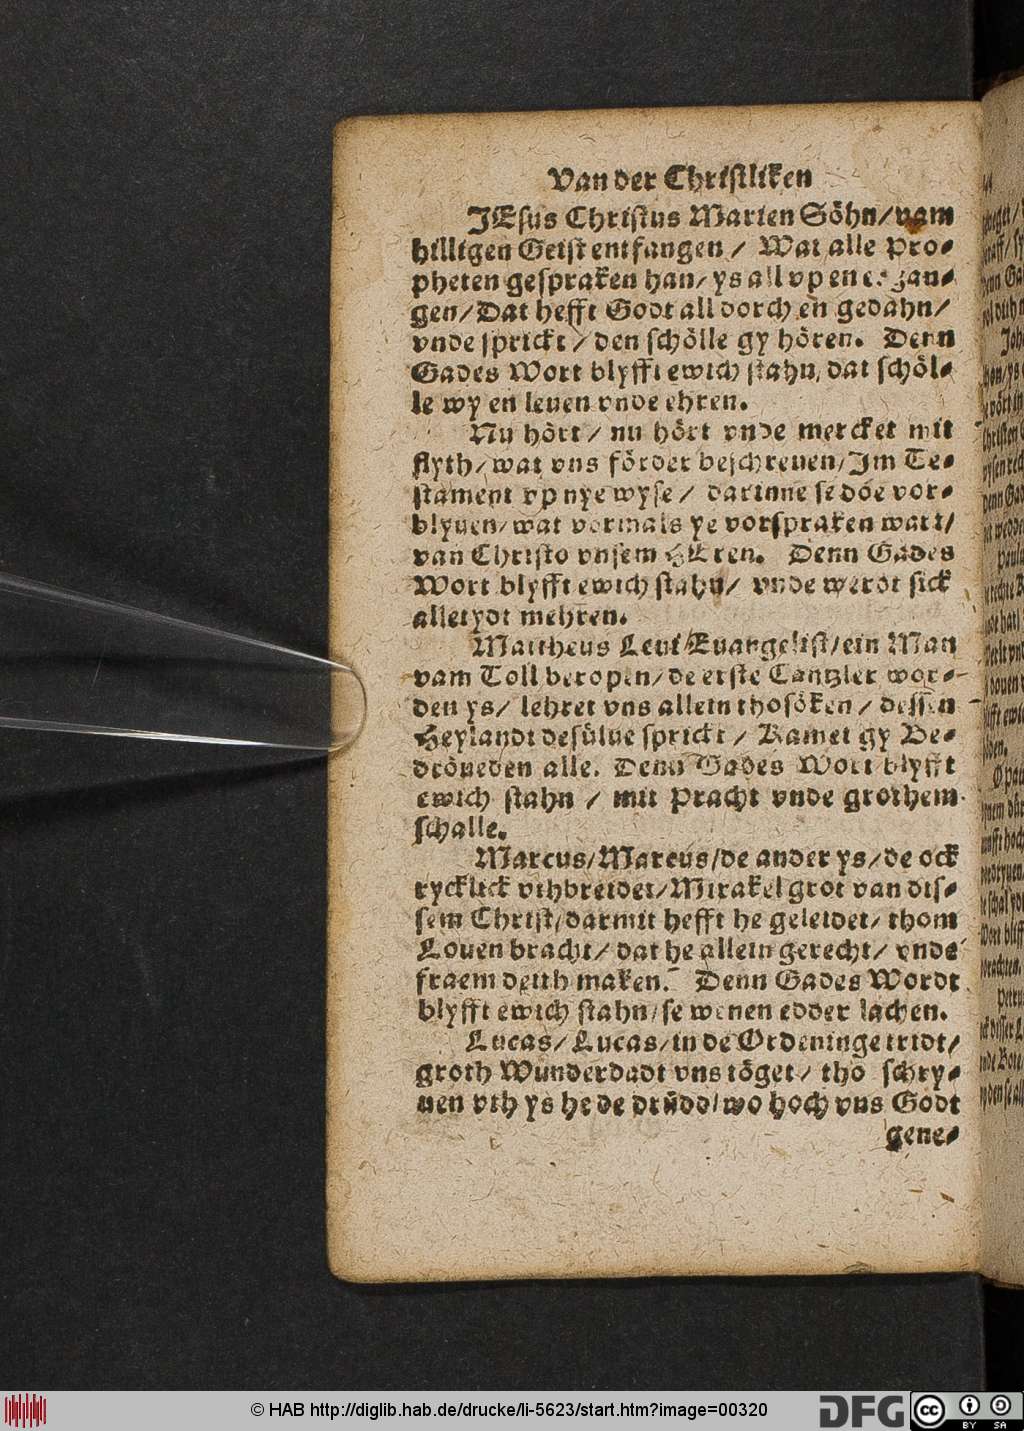 Van der Christliken
JEsus Christus Marien Söhn/vam
hilligen Geist entfangen / Wat alle Pro-
pheten gespraken han/ ys all vp en ergan-
gen/Dat hefft Godt all dorch en gedahn/
vnde sprickt / den schölle gy hören. Denn
Gades Wort blyfft ewich stahn, dat schöl-
le wy en leuen vnde ehren.
Nu hört / nu hört vnde mercket mit
flyth/wat vns förder beschreuen/Im Te-
stament vp nye wyse / darinne se döe vor-
blyuen/wat vormals ye vorspraken wart/
van Christo vnsem HEren. Denn Gades
Wort blyfft ewich stahn/ vnde werdt sick
alletydt mehren.
Mattheus Leui/Euangelist/ein Man
vam Toll beropen/de erste Cantzler wor-
den ys/ lehret vns allein thosöken / dessen
Heylandt desülue sprickt / Kamet gy Be-
dröueden alle. Denn Gades Wort blyfft
ewich stahn / mit Pracht vnde grothem
schalle.
Marcus/Marcus/de ander ys/de ock
rycklick vthbreidet/Mirakel grot van dis-
sem Christ/darmit hefft he geleidet/ thom
Louen bracht/ dat he allein gerecht/ vnde
fraem deith maken. Denn Gades Wordt
blyfft ewich stahn/se wenen edder lachen.
Lucas/Lucas/in de Ordeninge tridt/
groth Wunderdadt vns töget/ tho schry-
uen vth ys he de drüdd/wo hoch vns Godt
gene-
© HAB http://diglib.hab.de/drucke/li-5623/start.htm?image=00320
DFG
cc
BY SA